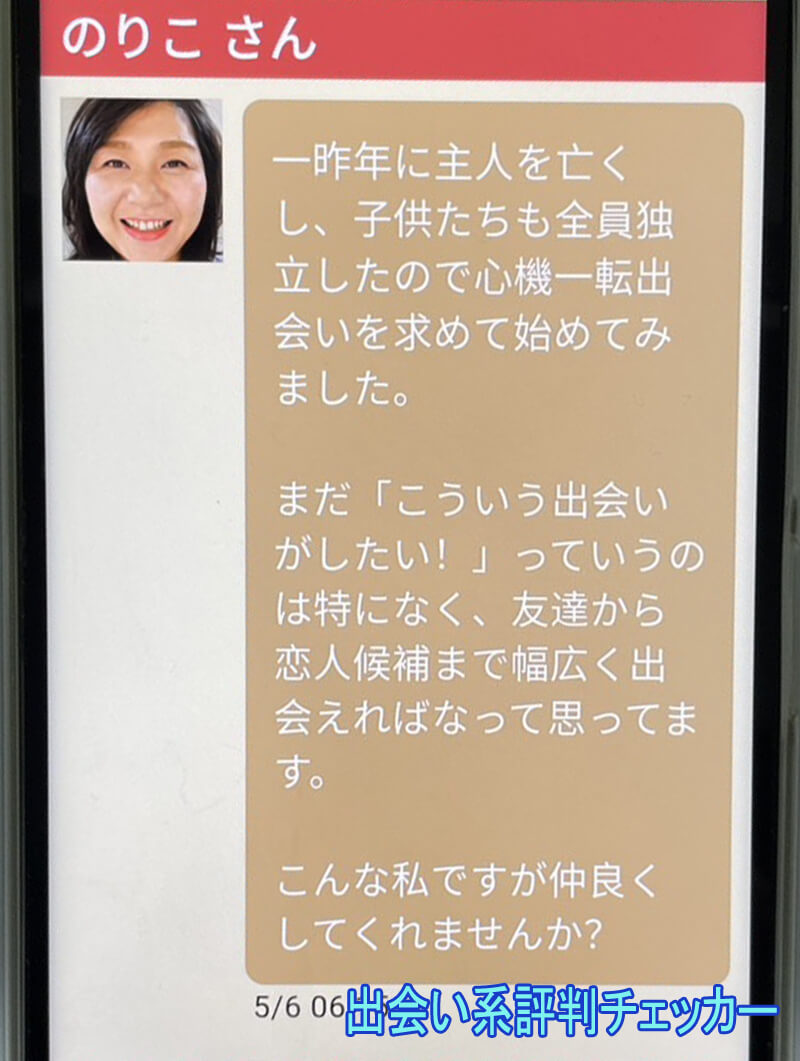 のりこ さん
一昨年に主人を亡く
し、子供たちも全員独
立したので心機一転出
会いを求めて始めてみ
ました。
まだ「こういう出会い
がしたい！」っていうの
は特になく、友達から
恋人候補まで幅広く出
会えればなって思ってま
す。
こんな私ですが仲良く
してくれませんか？
5/6
出会い系評判チェッカー